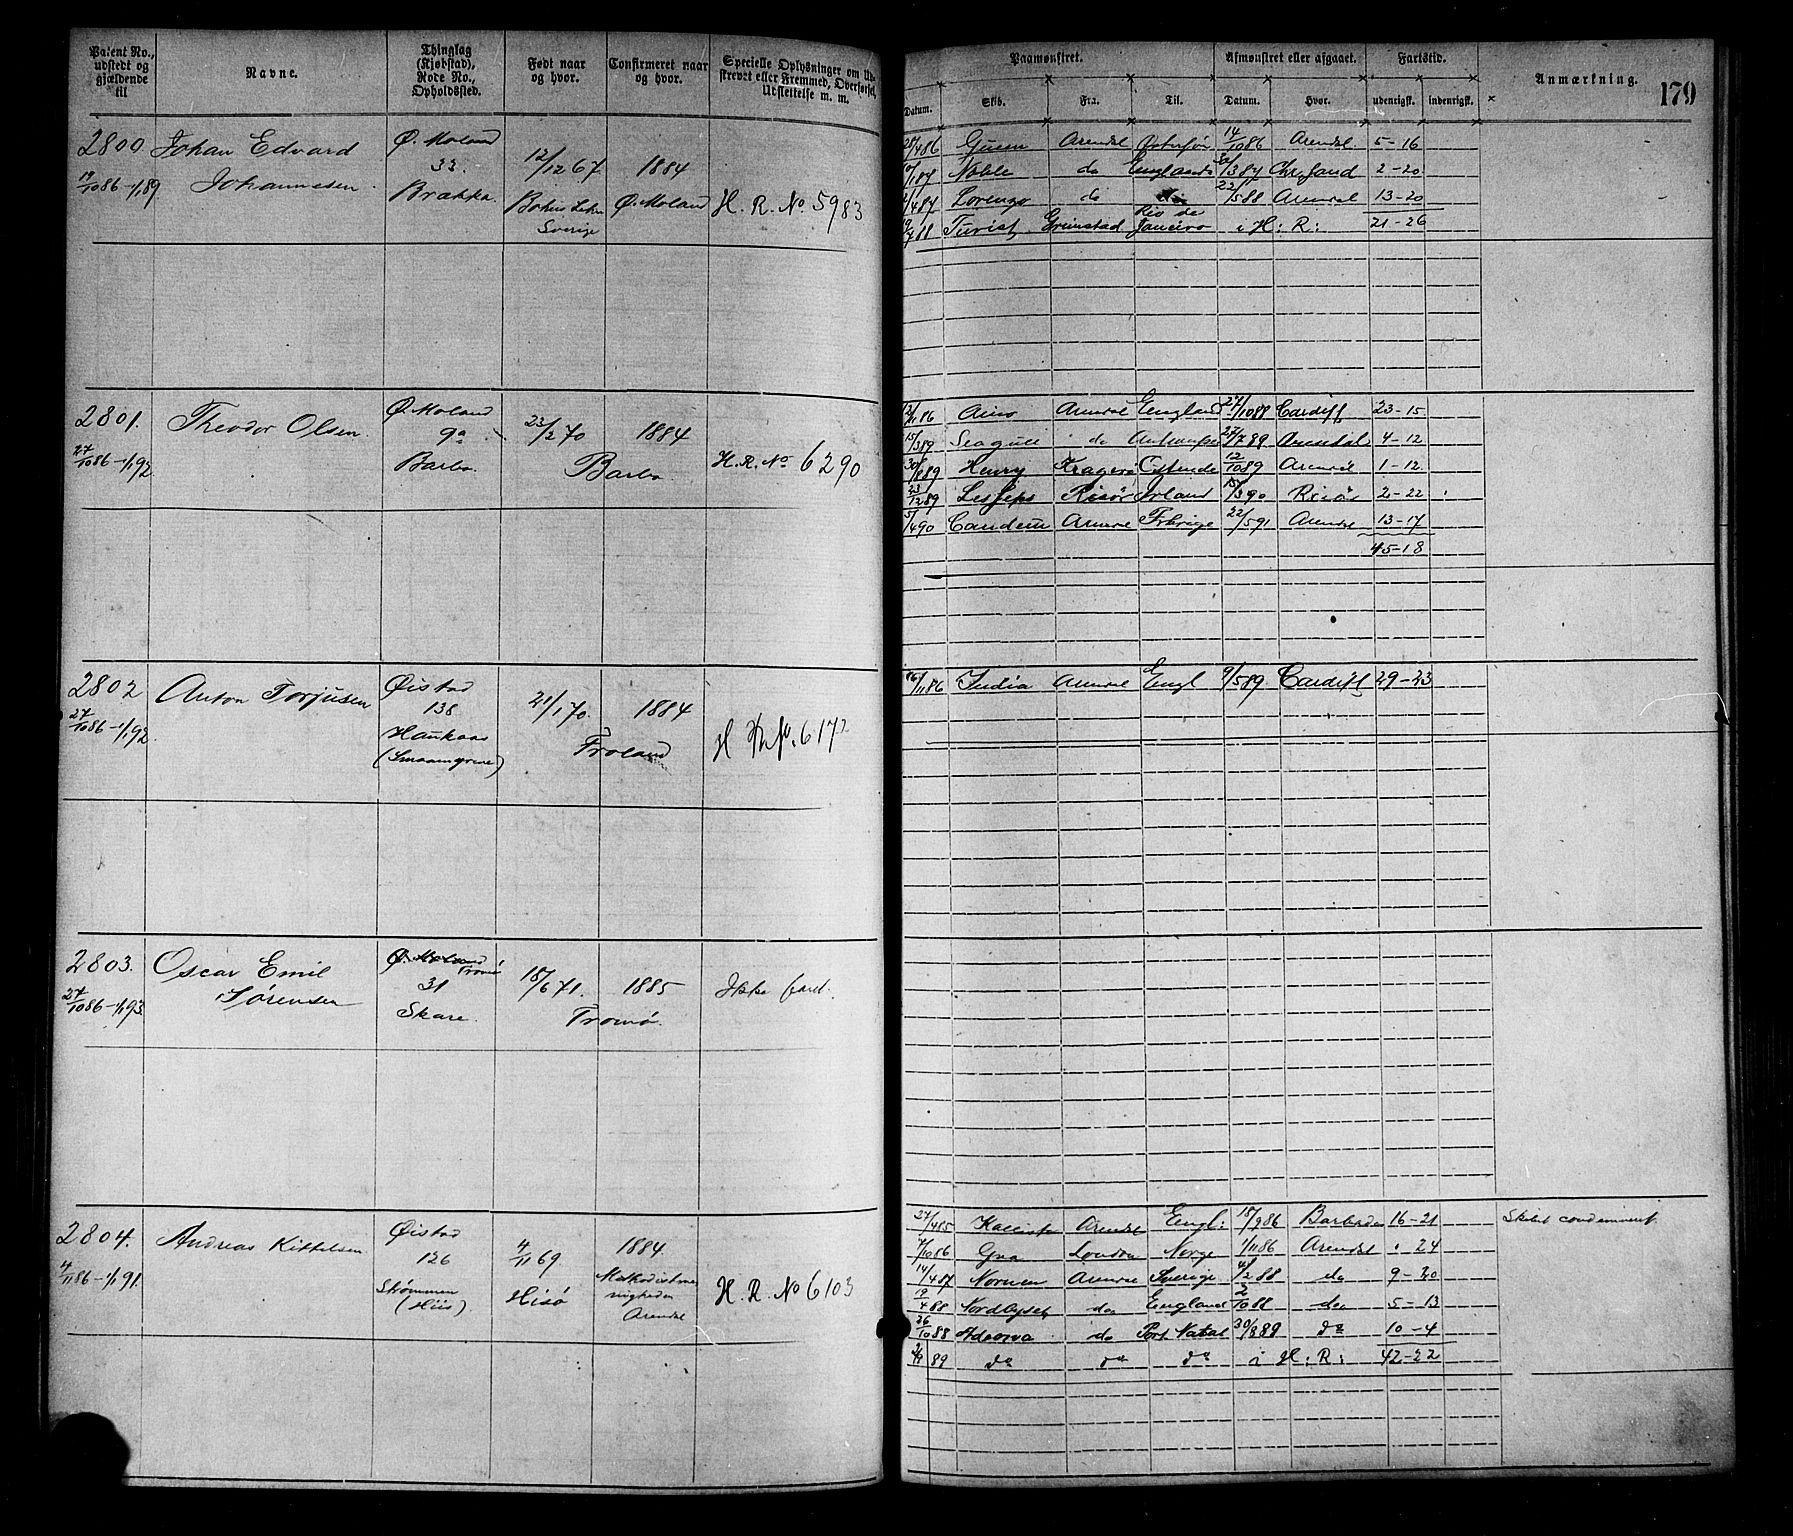 Patent No., udstedt og gjældende til
Navne.
Thinglag (Kjøbstad), Rode No., Opholdssted.
Født naar og hvor.
Confirmeret naar og hvor.
Specielle Oplysninger om Udskrevet eller Fremmed, Overførsel, Udslettelse m. m.
Paamønstret.
Afmønstret eller afgaaet.
Fartstid.
Anmærkning.
179
Datum.
Skib.
Fra.
Til.
Datum.
Hvor.
udenrigsk.
indenrigsk.
2800. Johan Edvard Ø. Moland
19/10 86-1/1 89 Johannesen. 33. 12/12 67. 1884
Brække. Bohus Lehn Ø. Moland H. R. No 5983
Sverige
28/4 86 Arendal Østersjø 14/10 86 Arendal 5-16
Noble do England 3 87 Chr.sand 2-20
4 87 Lorenzo do 22/5 88 Arendal 13-20
Turist Grimstad Rio de Janeiro i H: R: 21-26
2801. Theodor Olsen Ø. Moland
27/10 86-1/1 92. 9a 23/2 70 1884
Barbo. Barbo. H. R. No 6290
12/11 86 Aino Arendal England 27/10 88 Cardiff 23-15
15/3 89 Seagull do 27/7 89 Arendal 4-12
30/8 89 Henry Kragerø Ostende 12/10 89 Arendal 1-12
23/12 89 Lesseps Risør Irland 15/3 90 Risør 2-22
5/4 90 Arendal 22/5 91 Arendal 13-17
45-18
2802 Anton Torjusen Øistad
27/10 86-1/1 92. 138 21/1 70. 1884
Haukaas Froland H R. No. 6172
16/11 86 India Arendal Engl 9/5 89 Cardiff 29-23
2803. Oscar Emil Ø. Moland Tromø
27/10 86-1/1 93. Sørensen 31 18/6 71. 1885 Ikke faret.
Skare. Tromø.
2804. Andreas Kittelsen Øistad
4/11 86-1/1 91. 126 4/11 69 1884.
Strømmen Hisø Methodistmenigheden H. R. No 6103
(Hiis) Arendal
27/4 85 Arendal Engl: 18/9 86 Barbados 16-21 Skibet condemneret
7/10 86 Gna London Norge 1/11 86 Arendal " 24
14/4 87 Nornen Arendal Sverige 4/2 88 do 9-20
19/4 88 Nordlyset do England 2/10 88 do 5-13
26/10 88 do Port Natal 30/8 89 do 10-4
89 do do do i H: R: 42-22